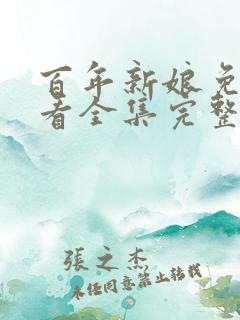 百年新娘免
看全集完整
張之杰
未经同意禁止转载